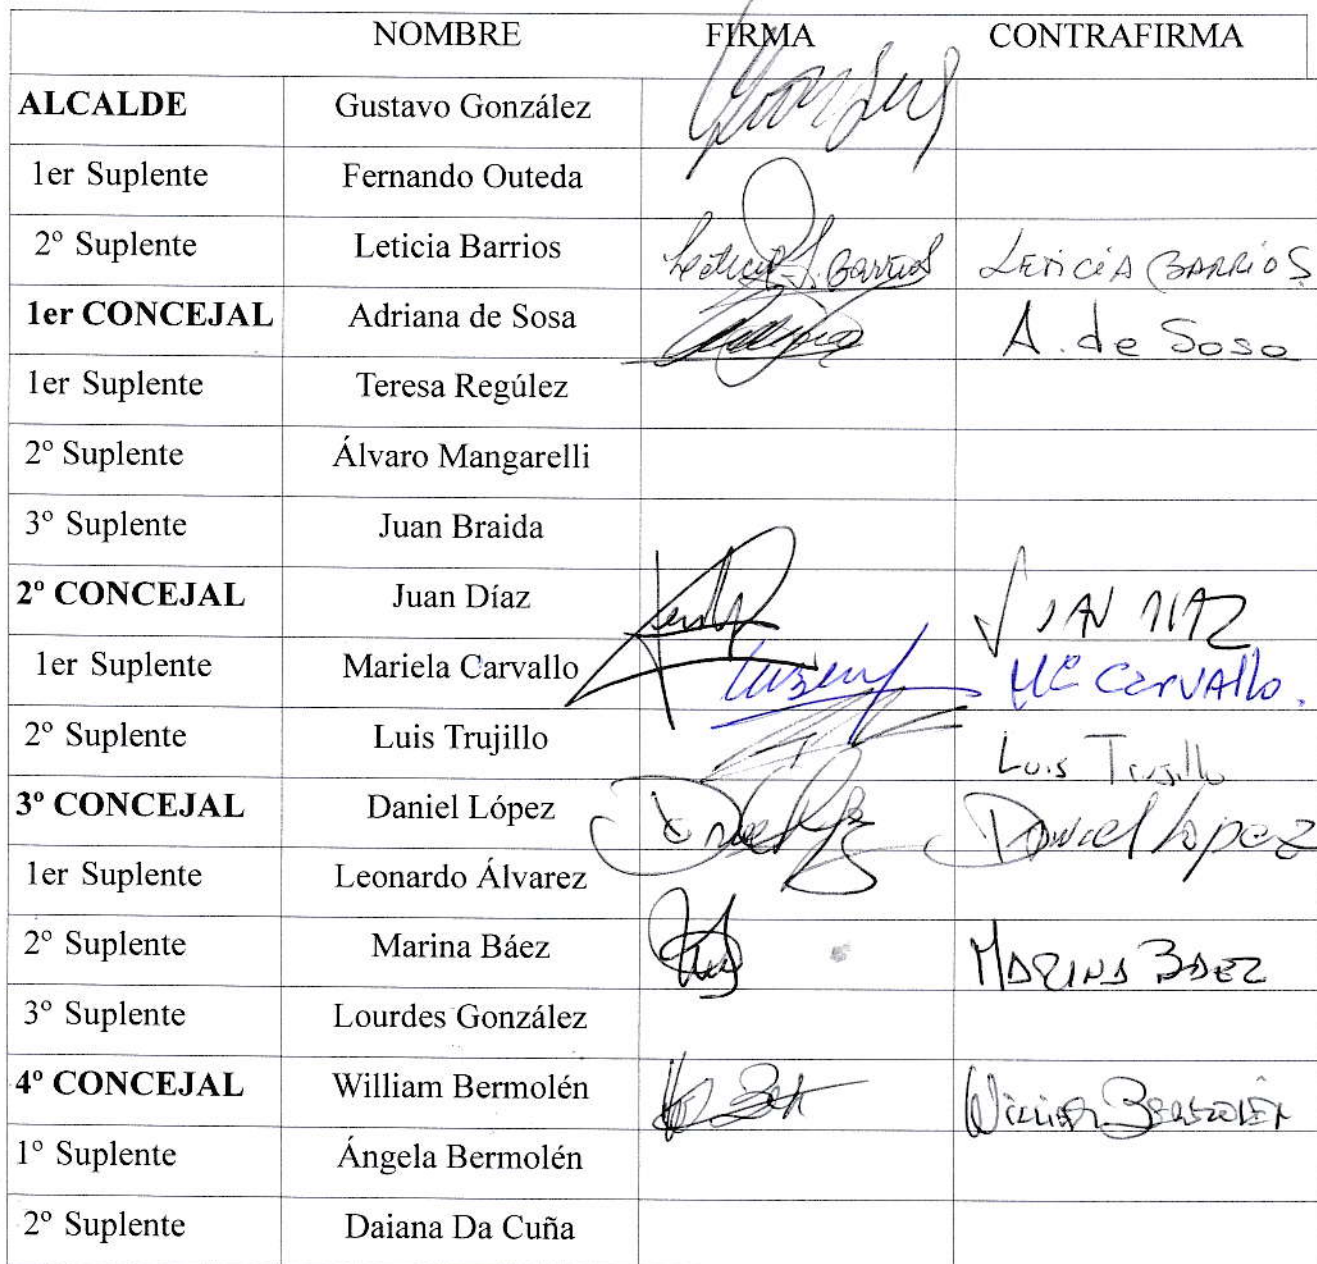 NOMBRE FIRMA CONTRAFIRMA
ALCALDE Gustavo González
1er Suplente Fernando Outeda
2º Suplente Leticia Barrios Leticia J. Barrios LETICIA BARRIOS
1er CONCEJAL Adriana de Sosa A. de Sosa
1er Suplente Teresa Regúlez
2º Suplente Álvaro Mangarelli
3º Suplente Juan Braida
2º CONCEJAL Juan Díaz JUAN DIAZ
1er Suplente Mariela Carvallo Mª CarVAllo.
2º Suplente Luis Trujillo Luis Trujillo
3º CONCEJAL Daniel López Daniel Lopez
1er Suplente Leonardo Álvarez
2º Suplente Marina Báez MARINA BAEZ
3º Suplente Lourdes González
4º CONCEJAL William Bermolén William BERMOLEN
1º Suplente Ángela Bermolén
2º Suplente Daiana Da Cuña